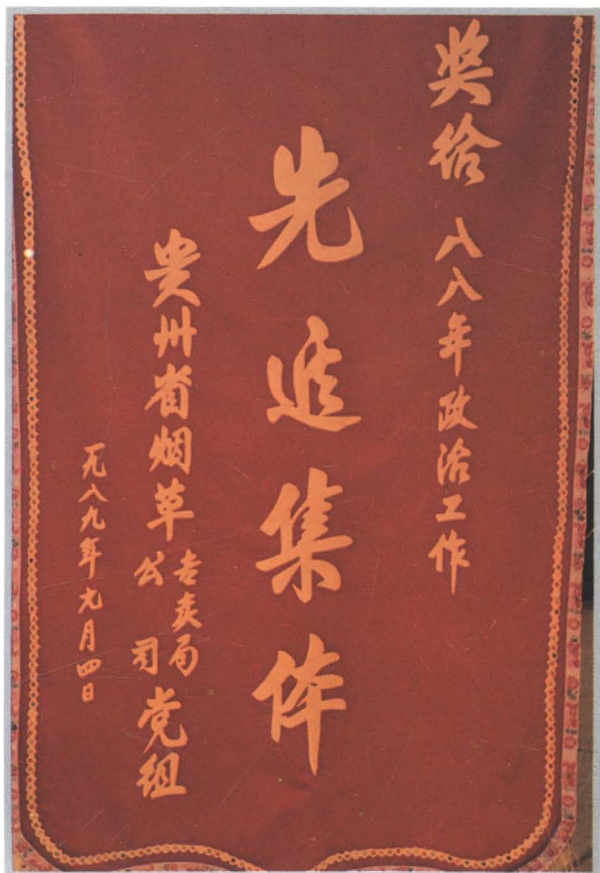 奖给 八八年政治工作
先进集体
贵州省烟草专卖局公司党组
一九八九年九月四日